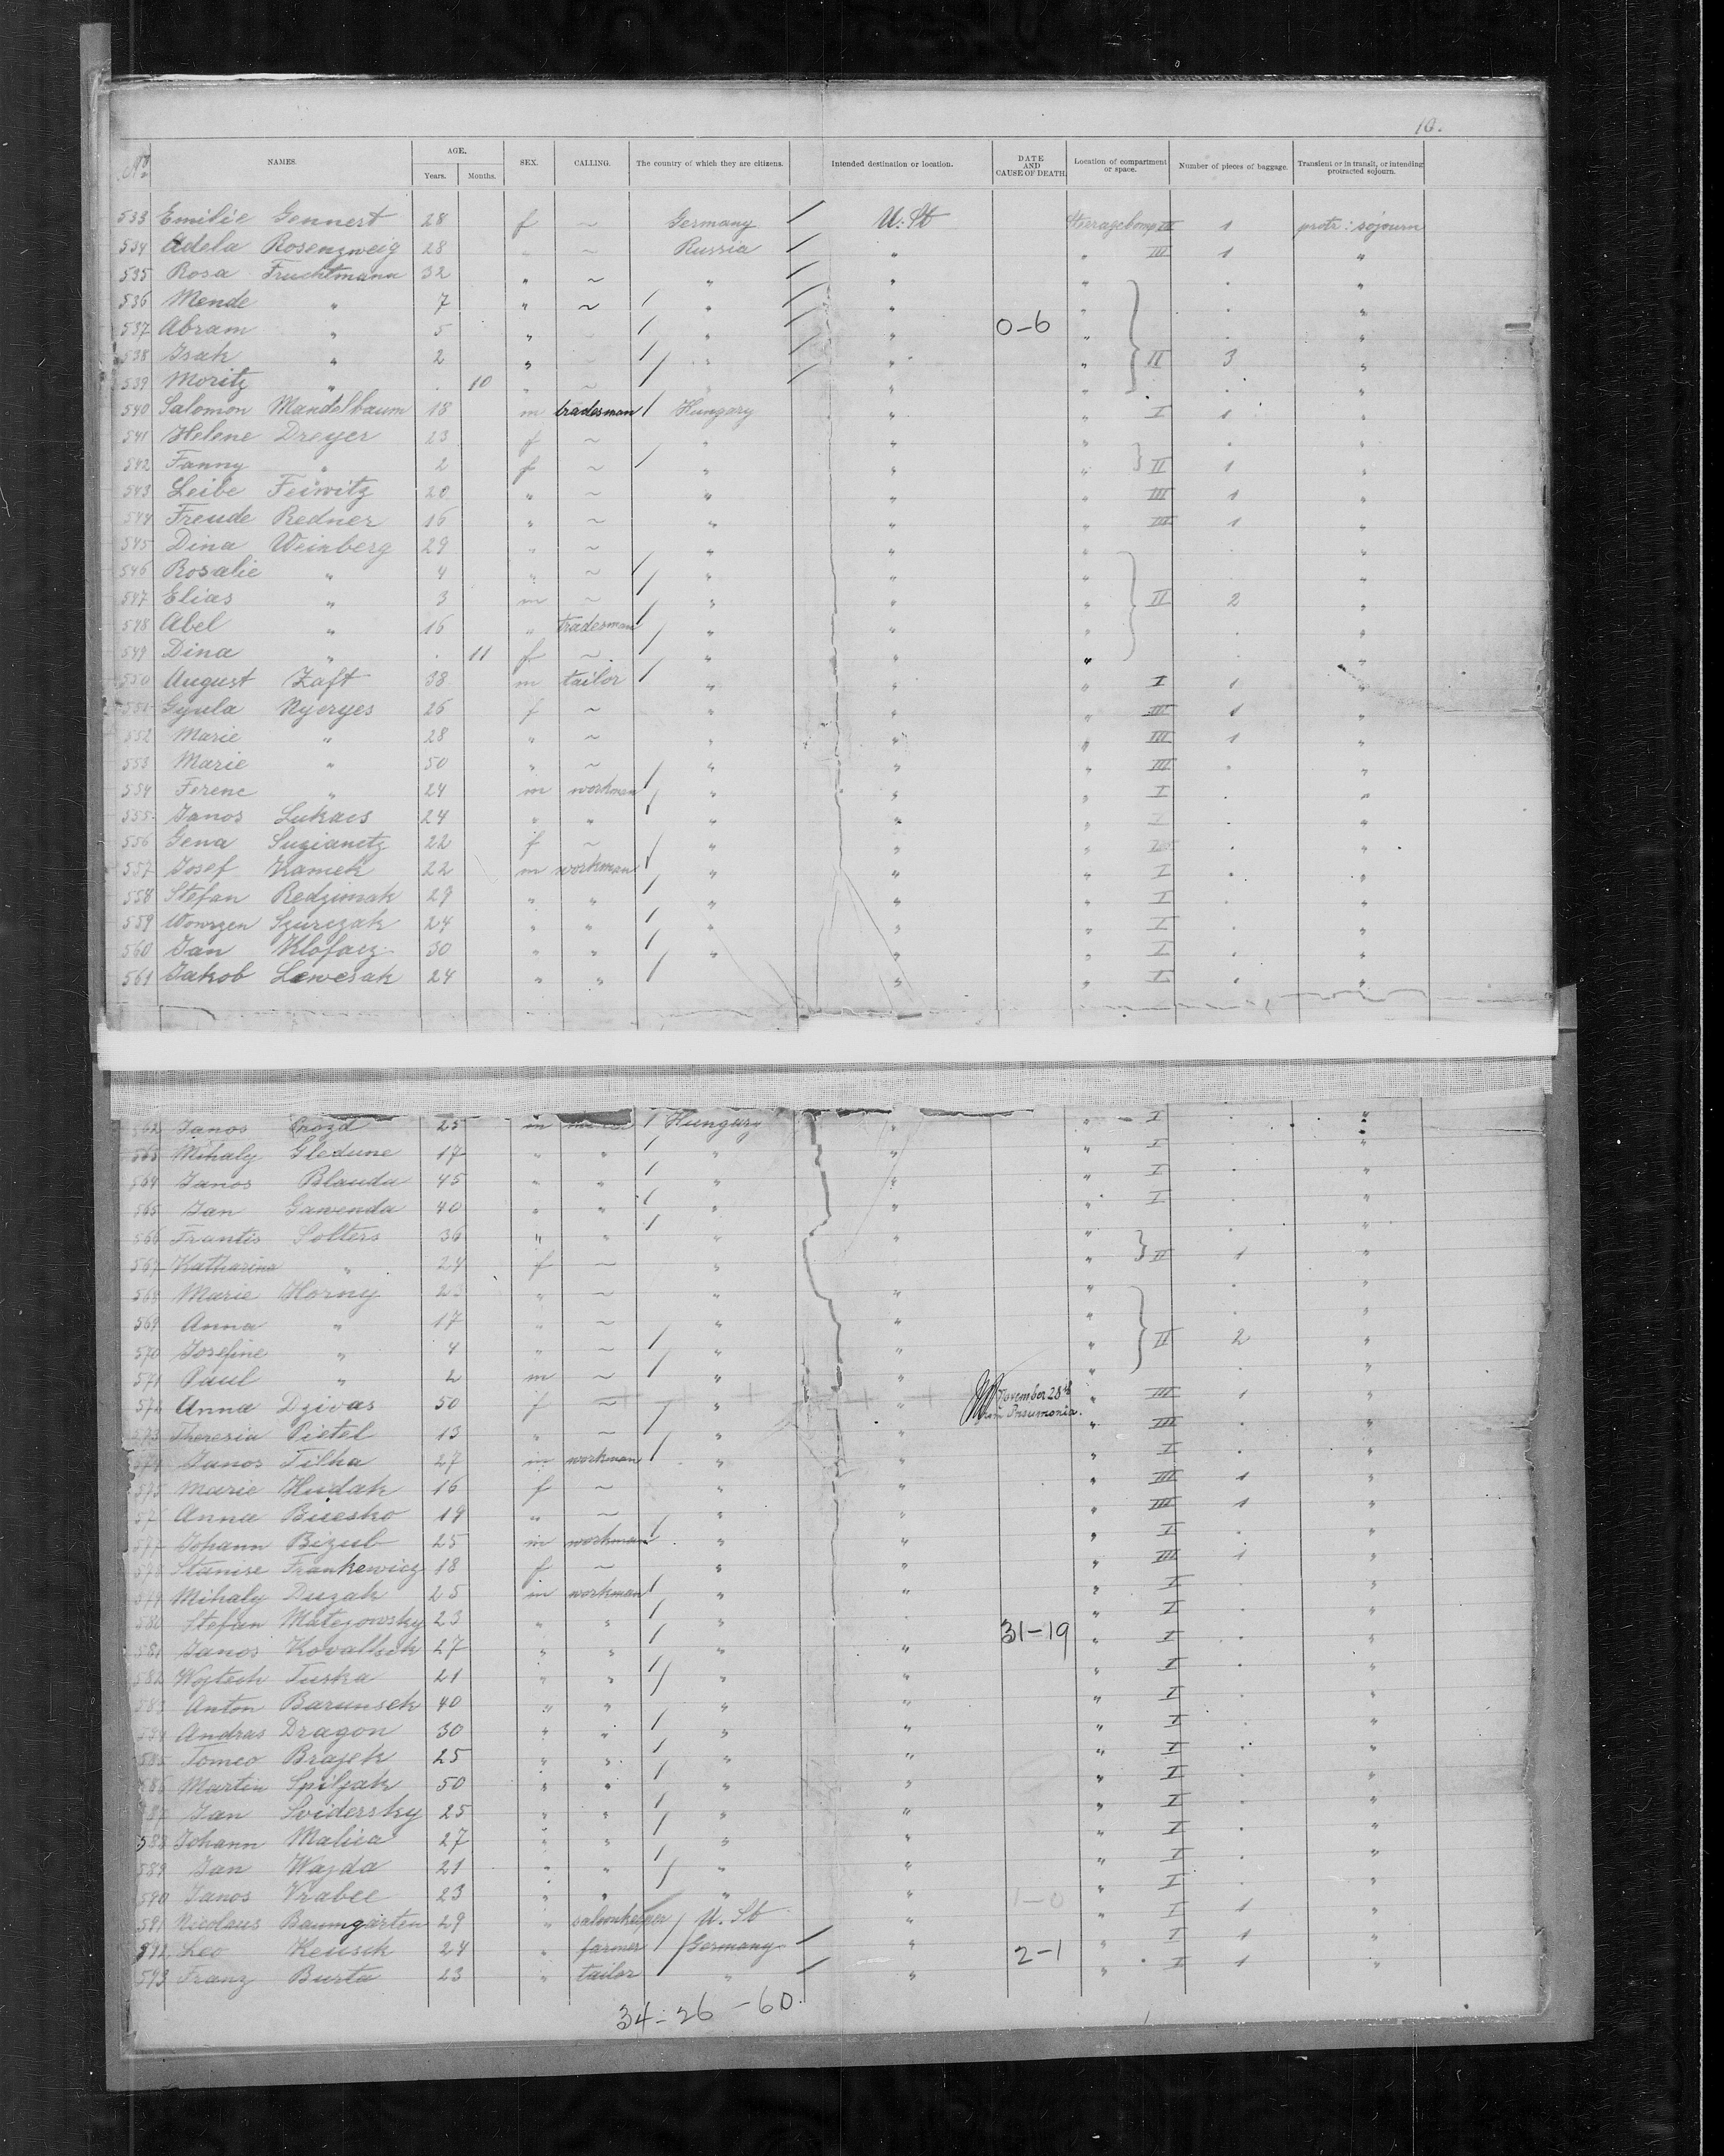 10.
No. NAMES. AGE. Years. Months. SEX. CALLING. The country of which they are citizens. Intended destination or location. DATE AND CAUSE OF DEATH. Location of compartment or space. Number of pieces of baggage. Transient or in transit, or intending protracted sojourn.
533 Emilie Gennert 28 f ~ Germany / U. St Steerage Comp III 1 protr: sojourn
534 Adela Rosenzweig 28 " ~ Russia / " " III 1 "
535 Rosa Fruchtmann 32 " ~ " / " " . "
536 Mende " 7 " ~ / " / " " . "
537 Abram " 5 " / " / " 0-6 " . "
538 Isak " 2 " / " / " " II 3 "
539 Moritz " . 10 " ~ / " / " " . "
540 Salomon Mandelbaum 18 m tradesman / Hungary " " I 1 "
541 Helene Dreyer 23 f ~ " " " . "
542 Fanny " 2 f ~ / " " " II 1 "
543 Leibe Feiwitz 20 " ~ " " " III 1 "
544 Freude Redner 16 " ~ " " " III 1 "
545 Dina Weinberg 29 " ~ " " " . "
546 Rosalie " 4 " ~ / " " " . "
547 Elias " 3 m ~ / " " " II 2 "
548 Abel " 16 " tradesman / " " " . "
549 Dina " . 11 f ~ / " " " . "
550 August Zaft 38 m tailor / " " " I 1 "
551 Gyula Nyeryes 26 f ~ " " " III 1 "
552 Marie " 28 " ~ " " " III 1 "
553 Marie " 50 " ~ " " " III . "
554 Ferenc " 24 m workman / " " " I . "
555 Janos Lukacs 24 " " / " " " I . "
556 Gena Suzianetz 22 f ~ " " " . "
557 Josef Kamek 22 m workman / " " " I . "
558 Stefan Redzimak 29 " " / " " " I . "
559 Wowrzen Szurczak 24 " " / " " " I . "
560 Jan Klofacz 30 " " / " " " I . "
561 Jakob Lewesak 24 " " / " " " I . "
562 Janos 25 m / Hungary " " I . "
563 Mihaly Gledune 17 " " / " " " I . "
564 Janos Blauda 45 " " / " " " I . "
565 Jan Gawenda 40 " " / " " " I . "
566 Frantis Solters 36 " " / " " " . "
567 Katharina " 24 f ~ " " II 1 "
568 Marie Horny " ~ " " " . "
569 Anna " 17 " ~ " " " . "
570 Josefine " 4 " ~ / " " " II 2 "
571 Paul " 2 m ~ / " " " . "
572 Anna Dzivas 50 f ~ " " November 28th Pneumonia. " III 1 "
573 Theresia Pietel 13 " ~ / " " " III . "
574 Janos Tilha 27 m workman / " " " I . "
575 Marie Hudak 16 f ~ " " " III 1 "
576 Anna Buesko 19 " ~ " " " III 1 "
577 Johann Bizub 25 m workman / " " " I . "
578 Stanise Frankewicz 18 f ~ " " " III 1 "
579 Mihaly Duzak 25 m workman / " " " I . "
580 Stefan Matezowsky 23 " " / " " " I . "
581 Janos Kovaltsik 27 " " / " " 31-19 " I . "
582 Wojtech Tuska 21 " " / " " " I . "
583 Anton Barunsek 40 " " / " " " I . "
584 Andras Dragon 30 " " / " " " I . "
585 Tomco Brajek 25 " " / " " " I . "
586 Martin Spiljak 50 " " / " " " I . "
587 Jan Svidersky 25 " " / " " " I . "
588 Johann Malica 27 " " / " " " I . "
589 Jan Wajda 21 " " / " " " I . "
590 Janos Vrabec 23 " " / " " 1-0 " I . "
591 Nicolaus Baumgarten 29 " saloonkeeper / U. St " " I 1 "
592 Leo Keusch 24 " farmer / Germany / " 2-1 " I 1 "
593 Franz Burta 23 " tailor / " / " " I 1 "
34-26-60.